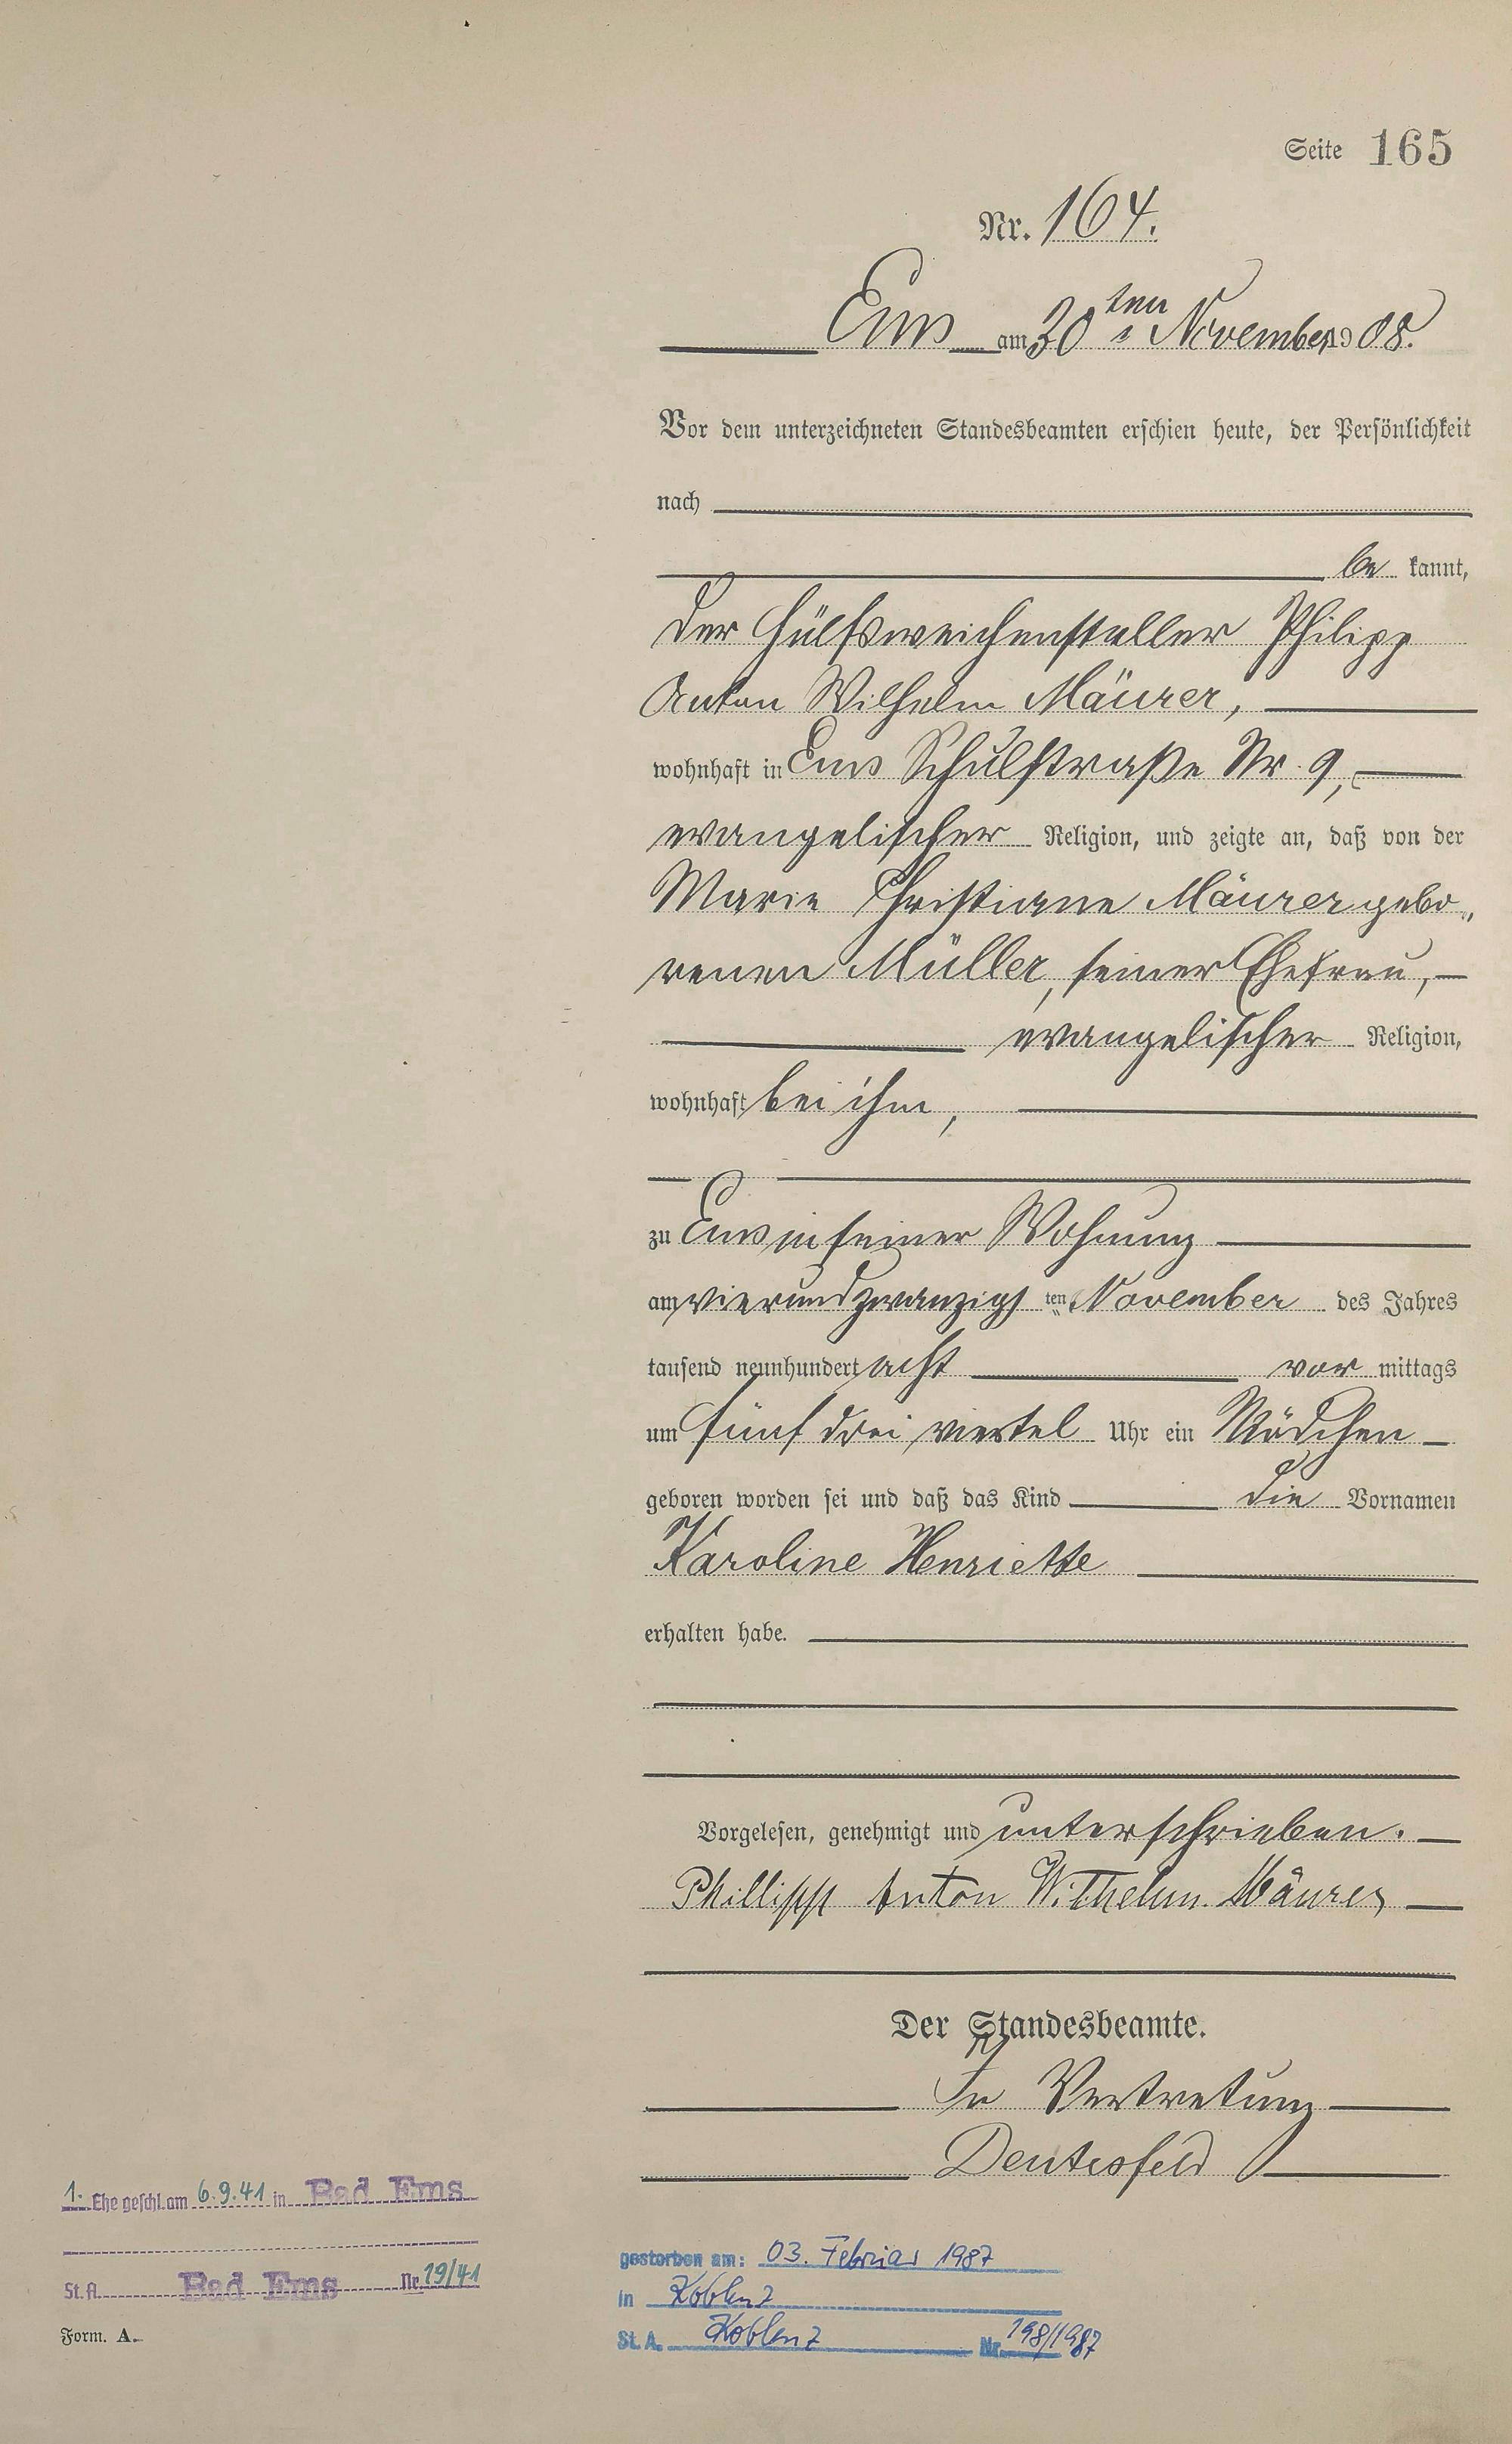 Seite 165
Nr. 164.
Ems am 30ten November 1908.
Vor dem unterzeichneten Standesbeamten erschien heute, der Persönlichkeit
nach
be kannt,
der Hülfsweichensteller Philipp
Anton Wilhelm Mäurer,
wohnhaft in Ems Schulstraße Nr. 9,
evangelischer Religion, und zeigte an, daß von der
Marie Christiane Mäurer gebo„
renen Müller, seiner Ehefrau,
evangelischer Religion,
wohnhaft bei ihm,
zu Ems in seiner Wohnung
am vierundzwanzigs ten November des Jahres
tausend neunhundert acht vor mittags
um fünf drei viertel Uhr ein Mädchen
geboren worden sei und daß das Kind die Vornamen
Karoline Henriette
erhalten habe.
Vorgelesen, genehmigt und unterschrieben.
Phillipp Anton Wilhelm Mäurer
Der Standesbeamte.
In Vertretung
1. Ehe geschl. am 6.9.41 in Bad Ems
St. A. Bad Ems Nr. 19/41
Form. A.
gestorben am: 03. Februar 1987
in Koblenz
St. A. Koblenz Nr. 198/1987